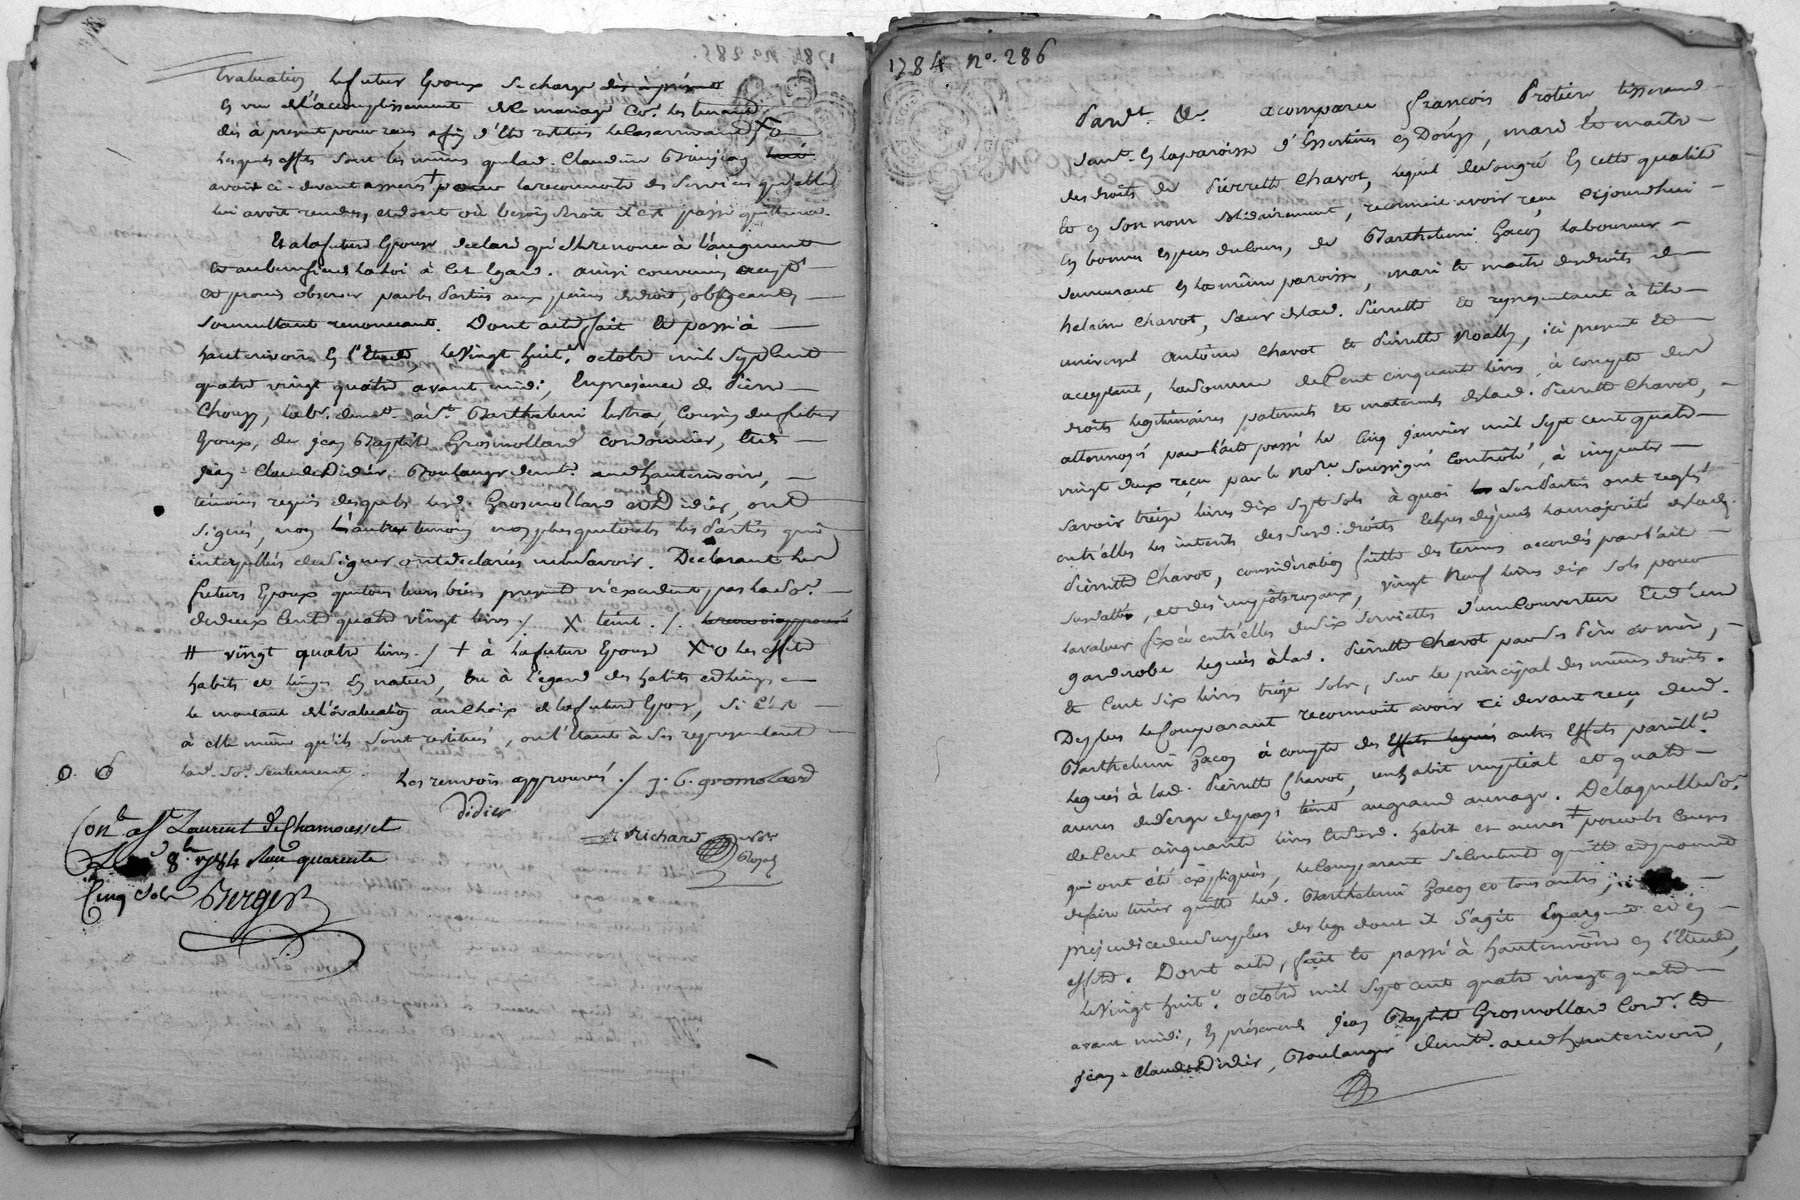 Evaluation le futur Epoux se charge dès à présent
En vue de l'accomplissement de ce mariage
dès à present pour afin d'être restitués le cas arrivant Xo
lesquels effets sont les mêmes que lad. Claudine
avoit ci-devant + pour la reconnoitre des services qu'elle
lui avoit rendus, et dont où besoin seroit il est passé quittance.
Et a la future Epouse declaré qu'elle renonce à l'augment
et au benefice de la loi à cet Egard. ainsi convenu accepté
et promis observer par les Parties aux peines de droit, obligeant
soumettant renonceant. Dont acte fait et passé à
hauterivoire En l'Etude le vingt huit.e octobre mil sept Cent
quatre vingt quatre avant midi, En presence de Pierre
lab.r demt. à St. Barthelemi lestra, Cousin du futur
Epoux, de jean Baptiste Grosmolland cordonnier, Et de
jean-Claude Didier Boulanger demt. aud hauterivoire,
témoins requis desquels lesd. Grosmolland et Didier, ont
signés, non l'autre temoin non plus que toutes les Parties qui
interpellées de signer ont declarés ne le savoir. Declarant les
futurs Epoux que tous leurs biens présents n'excedent pas la so.e
de deux Cent quatre vingt livres ./ X teint ./.
# vingt quatre livres ./ + à la future Epouse Xo les effets
habits et linges En nature, ou à l'egard des habits et linges
le montant de l'évaluation au choix de la future Epouse, si c'est
à elle même qu'ils sont restitués, ou l'étant à ses representants
lad. so.e seulement.
Les renvois approuvés ./ J. b. gromolard
didier
Richard
Con.lé à St Laurent de Chamousset
8.bre 1784 Reçu quarante
Cinq sols Berger
1784 n°. 286
Pardt. &c. a comparu François Protiere, tisserand
demt. En la paroisse d'Essertines En Donzy, mari et maitre
des droits de Pierrette Chavot, lequel de son gré En cette qualité
et En son nom solidairement, reconnoit avoir reçu cejourdhui
En bonnes especes de cours, de Barthelemi Gacon laboureur
demeurant En la même paroisse, mari et maitre des droits de
helaine Chavot, sœur de lad. Pierrette et representant à titre
universel Antoine Chavot et Pierrette Noally, ici present et
acceptant, la somme de Cent cinquante livres, à compte des
droits legitimaires paternels et maternels de lad. Pierrette Chavot,
par l'acte passé le cinq janvier mil sept cent quatre
vingt deux reçu par le no.re soussigné Contrôlé, à imputer
Savoir treize livres dix sept sols à quoi les Parties ont reglé
entr'elles les interêts desd. droits Echus depuis la majorité de lad.
Pierrette Chavot, consideration faitte des termes accordés par l'acte
susdatté, et des impôts royaux, vingt Neuf livres dix sols pour
la valeur fixée entr'elles de six serviettes d'une Couverture Et d'une
garderobe leguées à lad. Pierrette Chavot par ses Père et mère,
et Cent six livres treize sols, sur le principal des mêmes droits.
De plus le Comparant reconnoit avoir ci devant reçu dud.
Barthelemi Gacon à compte des autres Effets pareill.t
legués à lad. Pierrette Chavot, un habit nuptial et quatre
aunes de serge du pays teint au grand aunage. De laquelle so.e
de Cent cinquante livres Et desd. habit et aunes + pour les causes
qui ont été expliquées, le Comparant se Contente quitte et promet
de faire tenir quitte led. Barthelemi Gacon et tous autres,
prejudice du surplus des legs dont il s'agit En argent et En
effets. Dont acte, fait et passé à hauterivoire En l'Etude,
le vingt huit.e octobre mil sept cent quatre vingt quatre
avant midi, En présence de jean Baptiste Grosmolland Cord.r et
jean-Claude Didier, Boulanger demt. aud hauterivoire,